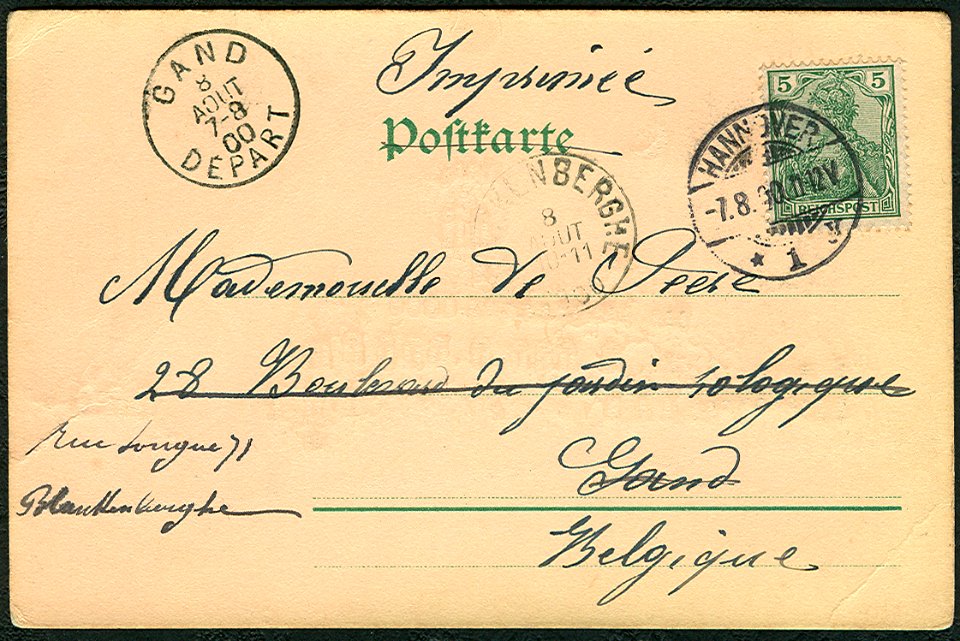 GAND
8
AOUT
7-8
00
DÉPART
Imprimée
Postkarte
5 5
REICHSPOST
HANNOVER
-7.8.00.11-12V.
* 1
NBERGHE
8
AOUT
-11
Mademoiselle de
28 Boulevard du jardin zologique
Rue Longue 71
Gand
Blankenberghe
Belgique